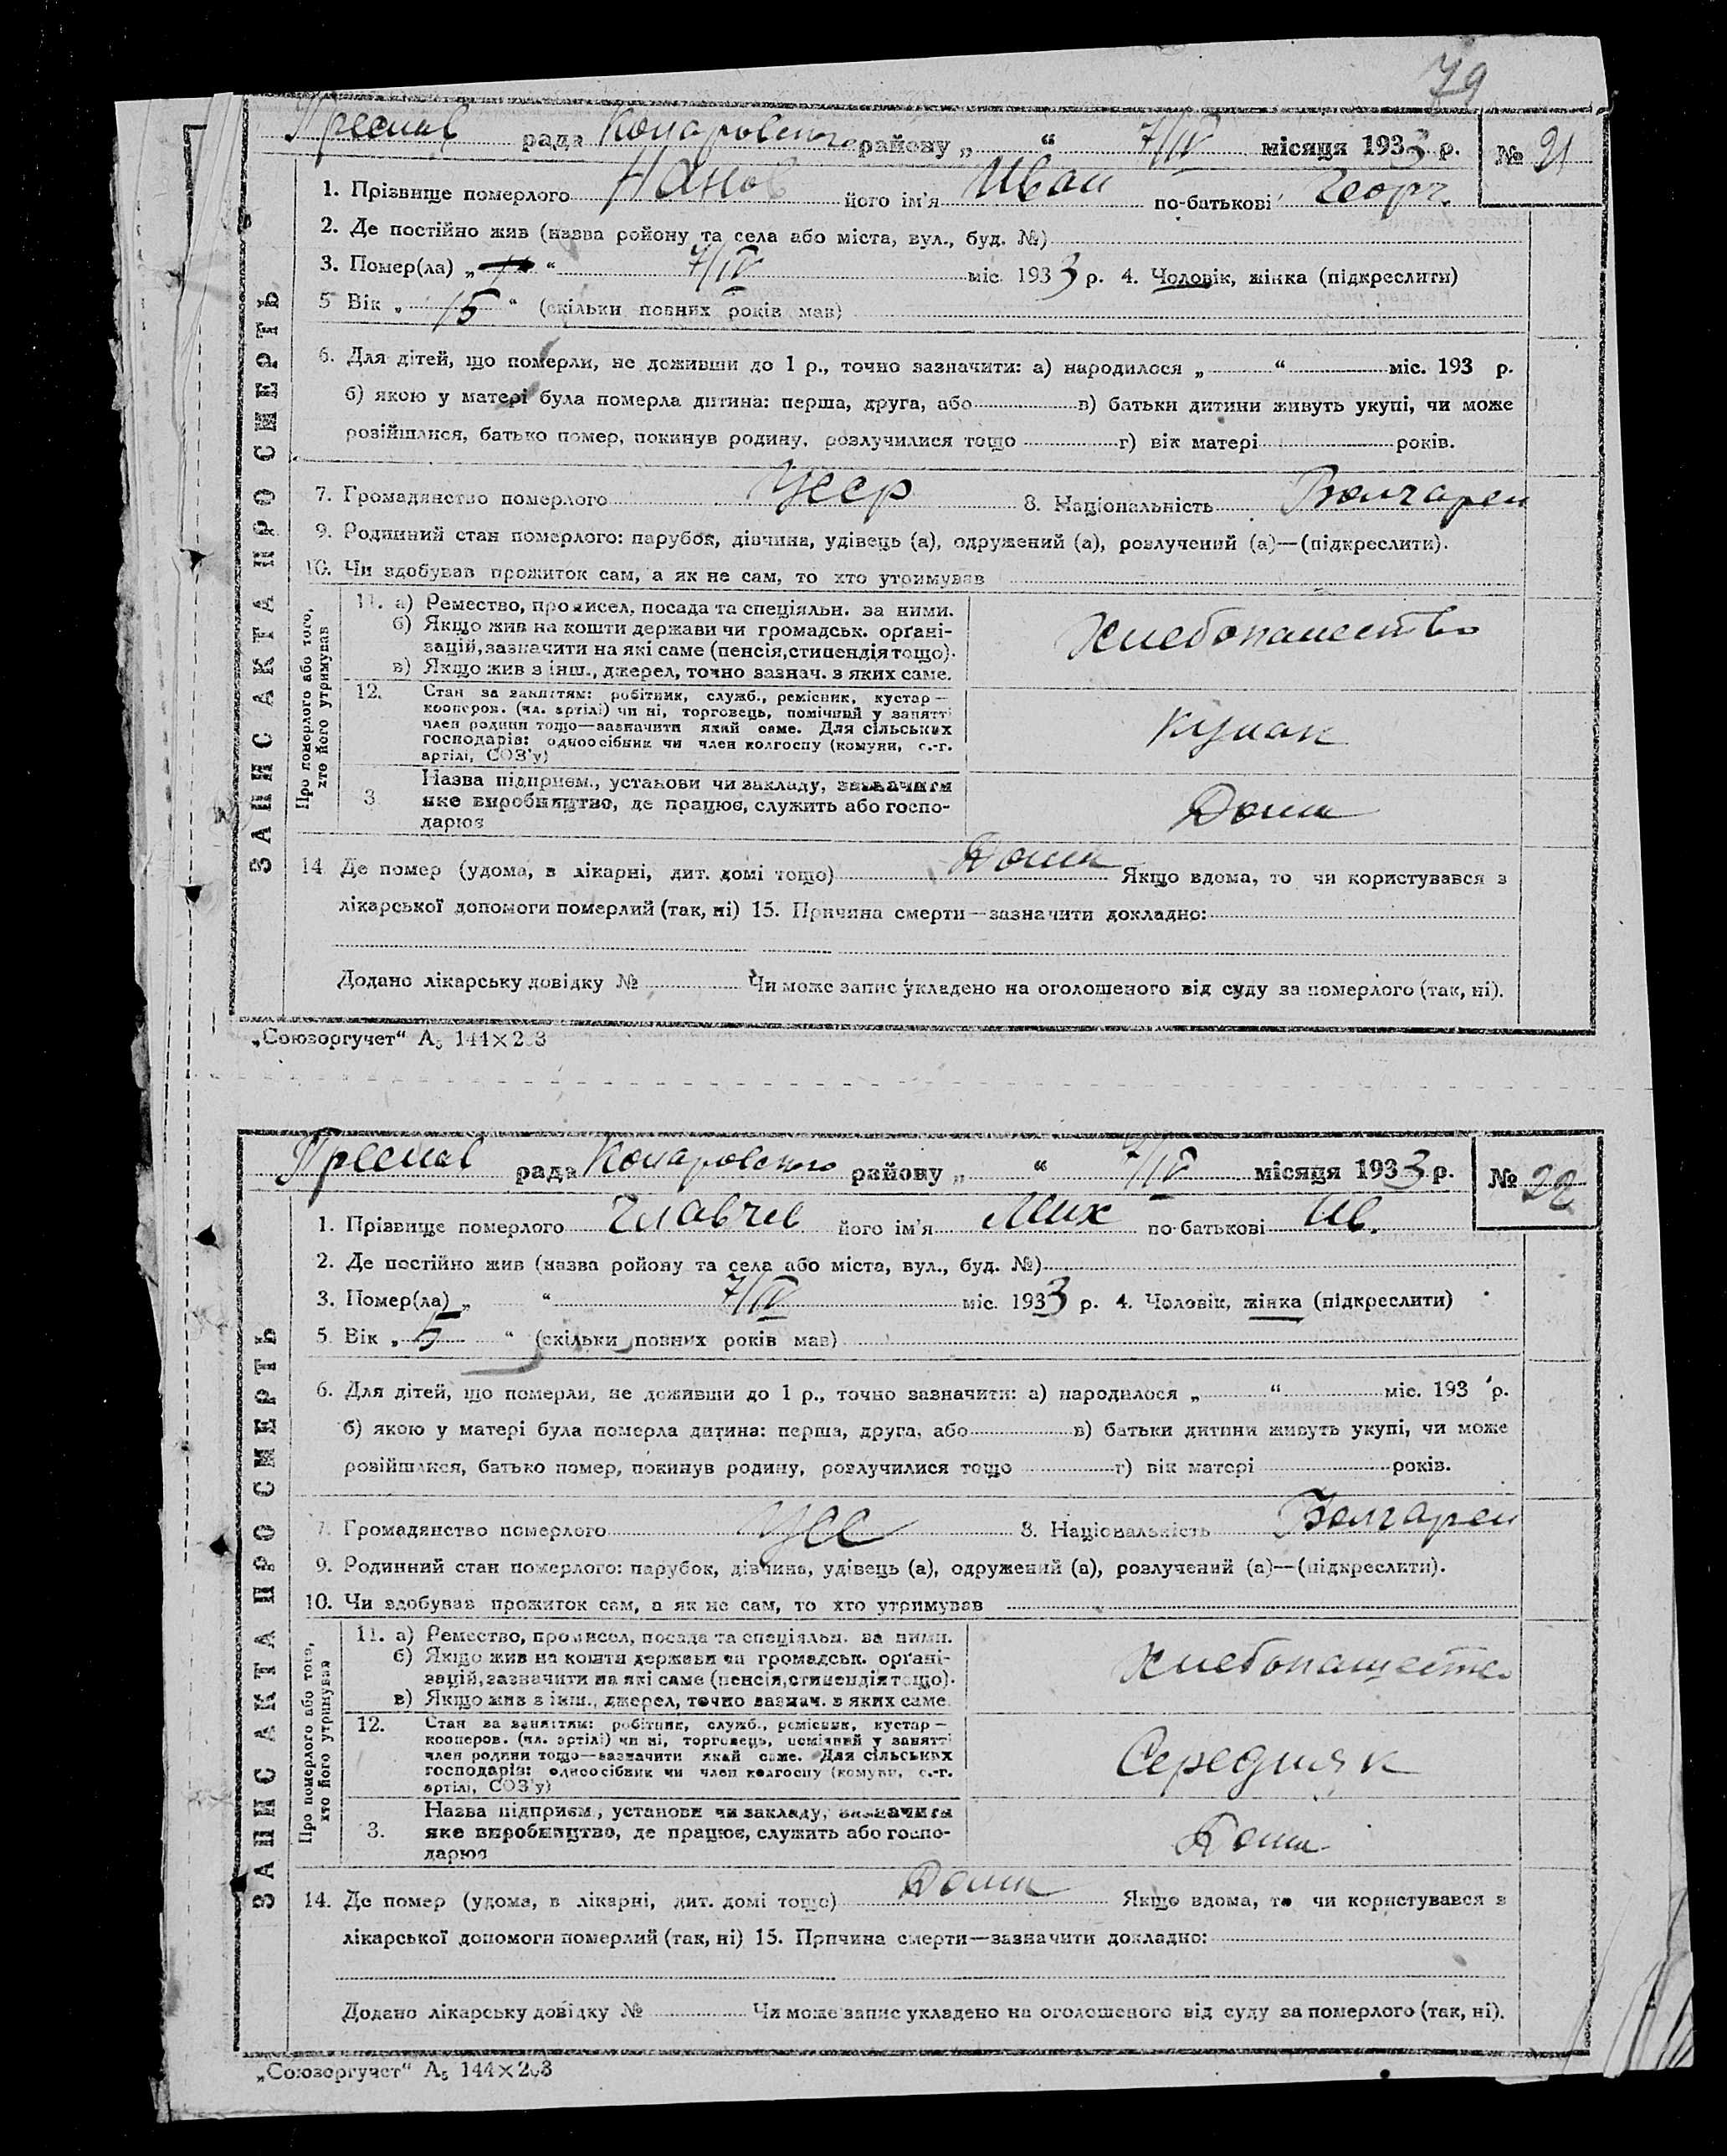 79
Преслав рада Коларовского району „ “ 7/IV місяця 1933 р. № 21
1. Прізвище померлого Нанов його ім'я Иван по-батькові Георг.
2. Де постійно жив (назва ройону та села або міста, вул., буд. №)
3. Помер(ла) „ “ 7/IV міс. 1933 р. 4. Чоловік, жінка (підкреслити)
5 Вік „ 15 “ (скільки повних років мав)
6. Для дітей, що померли, не доживши до 1 р., точно зазначити: а) народилося „ “ міс. 193 р.
б) якою у матері була померла дитина: перша, друга, або в) батьки дитини живуть укупі, чи може
розійшлися, батько помер, покинув родину, розлучилися тощо г) вік матері років.
7. Громадянство померлого Усср 8. Національність Болгарен
9. Родинний стан померлого: парубок, дівчина, удівець (а), одружений (а), розлучений (а)—(підкреслити).
10. Чи здобував прожиток сам, а як не сам, то хто утримував
ЗАПИС АКТА ПРО СМЕРТЬ
Про померлого або того,
хто його утримував
11. а) Ремество, промисел, посада та спеціяльн. за ними.
б) Якщо жив на кошти держави чи громадськ. орґані-
зацій, зазначити на які саме (пенсія, стипендія тощо).
в) Якщо жив з інш., джерел, точно зазнач. з яких саме.
Хлебопашество
12. Стан за заняттям: робітник, служб., ремісник, кустар—
кооперов. (чл. артілі) чи ні, торговець, помічний у занятті
член родини тощо—зазначити який саме. Для сільських
господарів: одноосібник чи член колгоспу (комуни, с.-г.
артілі, СОЗ'у)
кулак
3 Назва підприєм., установи чи закладу, зазначити
яке виробництво, де працює, служить або госпо-
дарює
Дома
14 Де помер (удома, в лікарні, дит. домі тощо) Дома Якщо вдома, то чи користувався з
лікарської допомоги померлий (так, ні) 15. Причина смерти—зазначити докладно:
Додано лікарську довідку № Чи може запис укладено на оголошеного від суду за померлого (так, ні).
„Союзоргучет“ А5 144×203
Преслав рада Коларовского району „ “ 7/IV місяця 1933 р. № 22
1. Прізвище померлого Главчев його ім'я Мих по-батькові Ив.
2. Де постійно жив (назва ройону та села або міста, вул., буд. №)
3. Помер(ла) „ “ 7/IV міс. 1933 р. 4. Чоловік, жінка (підкреслити)
5. Вік „ 5 “ (скільки повних років мав)
6. Для дітей, що померли, не доживши до 1 р., точно зазначити: а) народилося „ “ міс. 193 р.
б) якою у матері була померла дитина: перша, друга, або в) батьки дитини живуть укупі, чи може
розійшлися, батько помер, покинув родину, розлучилися тощо г) вік матері років.
7. Громадянство померлого Усс 8. Національність Болгарен
9. Родинний стан померлого: парубок, дівчина, удівець (а), одружений (а), розлучений (а)—(підкреслити).
10. Чи здобував прожиток сам, а як не сам, то хто утримував
ЗАПИС АКТА ПРО СМЕРТЬ
Про померлого або того,
хто його утримував
11. а) Ремество, промисел, посада та спеціяльн. за ними.
б) Якщо жив на кошти держави чи громадськ. орґані-
зацій, зазначити на які саме (пенсія, стипендія тощо).
в) Якщо жив з інш., джерел, точно зазнач. з яких саме.
Хлебопашество
12. Стан за заняттям: робітник, служб., ремісник, кустар—
кооперов. (чл. артілі) чи ні, торговець, помічний у занятті
член родини тощо—зазначити який саме. Для сільських
господарів: одноосібник чи член колгоспу (комуни, с.-г.
артілі, СОЗ'у)
Середняк
3. Назва підприєм., установи чи закладу, зазначити
яке виробництво, де працює, служить або госпо-
дарює
Дома
14. Де помер (удома, в лікарні, дит. домі тощо) Дома Якщо вдома, то чи користувався з
лікарської допомоги померлий (так, ні) 15. Причина смерти—зазначити докладно:
Додано лікарську довідку № Чи може запис укладено на оголошеного від суду за померлого (так, ні).
„Союзоргучет“ А5 144×203